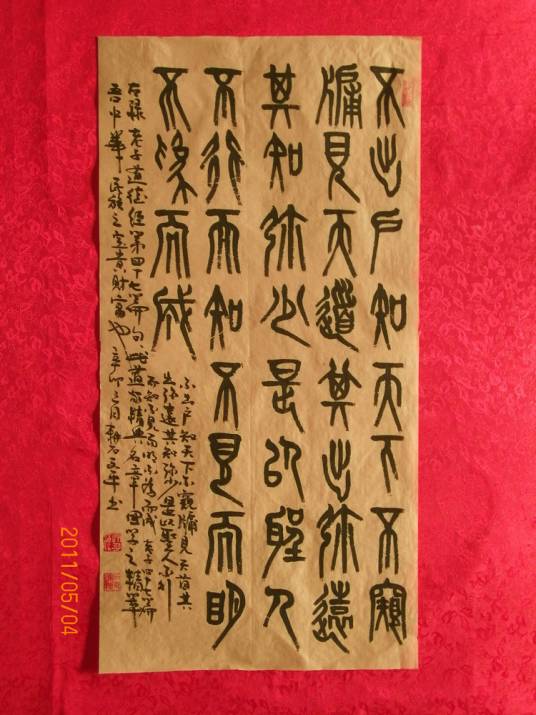 不出戶知天下不窺
牖見天道其出弥遠
其知弥少是以聖人
不行而知不見而明
不為而成
不出户知天下不窺牖見天道其
出弥遠其知弥少是以聖人不行
而知不見而明不為而成 老子四十七篇
右録老子道德經第四十七篇句此道家精典名章國学之精華
吾中華民族之宝貴財富也 辛卯三月
2011/05/04